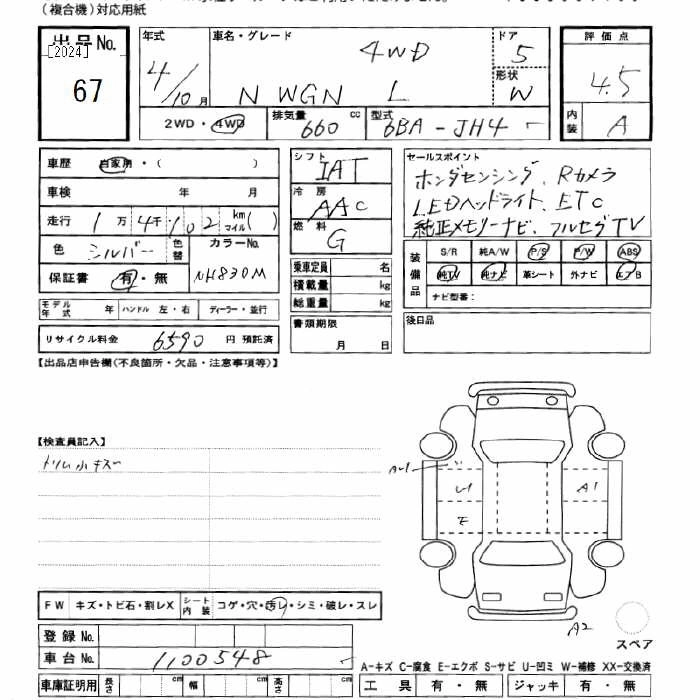 (複合機)対応用紙
出品No.
[2024]
67
年式
4/10月
車名・グレード
4WD
N WGN L
ドア
5
形状
W
評価点
4.5
内装
A
2WD・4WD
排気量 660 cc
型式 6BA-JH4
車歴 自家用・( )
車検 年 月
走行 1万4千102 km マイル( )
色 シルバー 色替 カラーNo.
保証書 有・無 NH830M
モデル年式 年 ハンドル 左・右 ディーラー・並行
リサイクル料金 6590 円 預託済
シフト IAT
冷房 AAC
燃料 G
乗車定員 名
積載量 kg
総重量 kg
書類期限
月 日
セールスポイント
ホンダセンシング、Rカメラ
LEDヘッドライト、ETC
純正メモリーナビ、フルセグTV
装備品
S/R 純A/W P/S P/W ABS
純TV 純ナビ 革シート 外ナビ エアB
ナビ型番:
後日品
【出品店申告欄(不良箇所・欠品・注意事項等)】
【検査員記入】
トリム小キズ
A1
U1
A1
E
A2
スペア
FW キズ・トビ石・割レX シート内装 コゲ・穴・汚レ・シミ・破レ・スレ
登録No.
車台No. 1100548
車庫証明用 長さ cm 幅 cm 高さ cm
A-キズ C-腐食 E-エクボ S-サビ U-凹ミ W-補修 XX-交換済
工具 有・無 ジャッキ 有・無